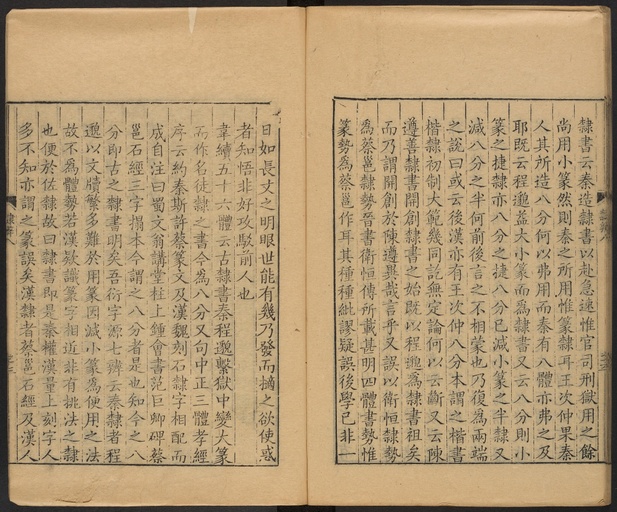 隸書云秦造隸書以赴急速惟官司刑獄用之餘
尚用小篆然則秦之所用惟篆隸耳王次仲果秦
人其所造八分何以弗用而秦有八體亦弗之及
耶既云程邈益大小篆而為隸書又云八分則小
篆之捷隸亦八分之捷八分已減小篆之半隸又
減八分之半何前後言之不相蒙也乃復為兩端
之說曰或云後漢亦有王次仲八分本謂之楷書
楷隸初制大範幾同訖無定論何以云斷又云陳
遵善隸書開創隸書之始既以程邈為隸書祖矣
而乃謂開創於陳遵異哉言乎又誤以衛恒隸勢
為蔡邕隸勢晉書衛恒傳所載甚明四體書勢惟
篆勢為蔡邕作耳其種種紕謬疑誤後學已非一
日如長丈之明眼世能有幾乃發而擿之欲使惑
者知悟非好攻駁前人也
韋續五十六體云古隸書秦程邈繫獄中變大篆
而作名徒隸之書今為八分又句中正三體孝經
序云約秦斯許蔡篆文及漢魏刻石隸字相配而
成自注曰蜀文翁講堂柱上鍾會書范巨卿碑蔡
邕石經三字搨本今謂之八分者是也知今之八
分即古之隸書明矣吾衍字源七辨云秦隸者程
邈以文牘繁多難於用篆因減小篆為便用之法
故不為體勢若漢欵識篆字相近非有挑法之隸
也便於佐隸故曰隸書即是秦權漢量上刻字人
多不知亦謂之篆誤矣漢隸者蔡邕石經及漢人
隸辨 八